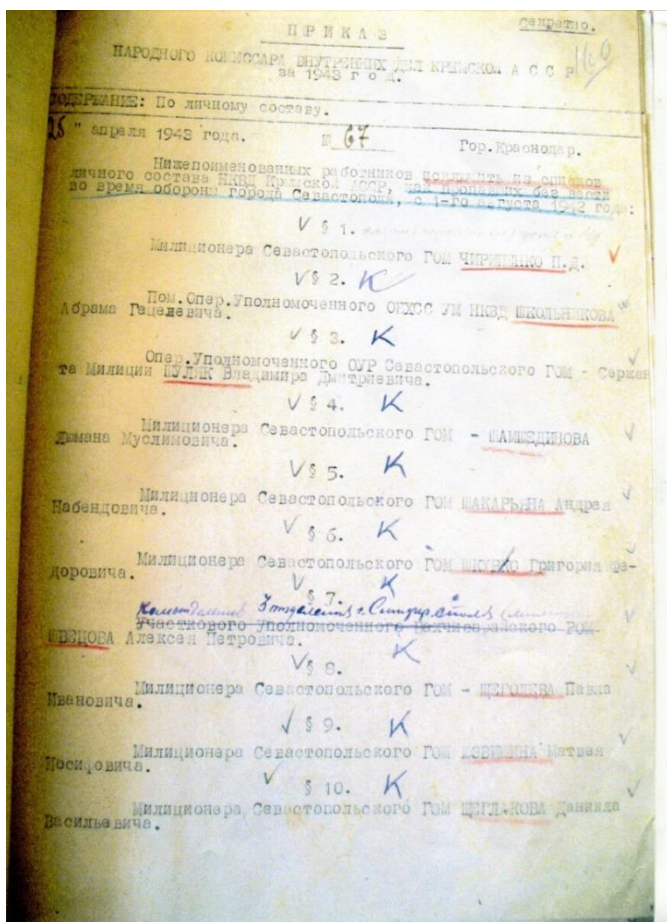 секретно.
ПРИКАЗ
160
НАРОДНОГО КОМИССАРА ВНУТРЕННИХ ДЕЛ КРЫМСКОЙ А С С Р
за 1943 г о д.
СОДЕРЖАНИЕ: По личному составу.
" апреля 1943 года. № 67 Гор.Краснодар.
Нижепоименованных работников из списков
личного состава НКВД Крымской АССР, как пропавших без вести
во время обороны города Севастополя, с 1-го августа 1942 года:
V § 1.
Милиционера Севастопольского ГОМ П.Д. V
V § 2. К
Пом.Опер.Уполномоченного ОБХСС УМ НКВД ШКОЛЬНИКОВА
Абрама Гецелевича.
V § 3. К
Опер.Уполномоченного ОУР Севастопольского ГОМ - Сержан
та Милиции ШУЛИК Владимира Дмитриевича.
V § 4. К
Милиционера Севастопольского ГОМ - ШАМШЕДИНОВА
Муслимовича.
V § 5. К
Милиционера Севастопольского ГОМ ШАКАРЬЯНА Андрея
Набендовича.
V § 6. К
Милиционера Севастопольского ГОМ ШКУРКО Григория Фе-
доровича.
V § 7. К
Участкового Уполномоченного Бахчисарайского РОМ
ШВЕЦОВА Алексея Петровича.
V § 8. К
Милиционера Севастопольского ГОМ - ЩЕГОЛЕВА Павла
Ивановича.
V § 9. К
Милиционера Севастопольского ГОМ Матвея
Иосифовича.
V § 10. К
Милиционера Севастопольского ГОМ Даниила
Васильевича.